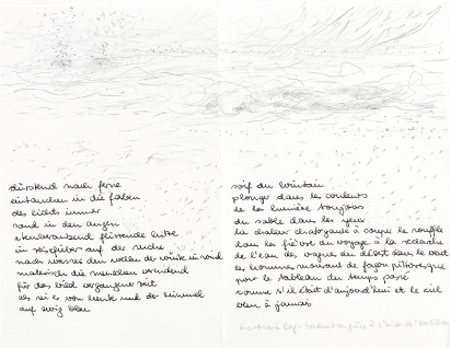 dürstend nach ferne
eintauchen in die farben
des lichts immer
sand in den augen
atemraubend flirrende hitze
im reisefieber auf der suche
nach wasser den wellen der wüste im wind
malerisch die menschen
für das bild vergangener zeit
als sei es von heute und der himmel
auf ewig blau
soif du lointain
plonger dans les couleurs
de la lumière toujours
du sable dans les yeux
la chaleur chatoyante à couper le souffle
dans la fièvre du voyage à la recherche
de l'eau des vagues du désert dans le vent
les hommes mourant de façon pittoresque
pour le tableau du temps passé
comme s'il était d'aujourd'hui et le ciel
bleu à jamais